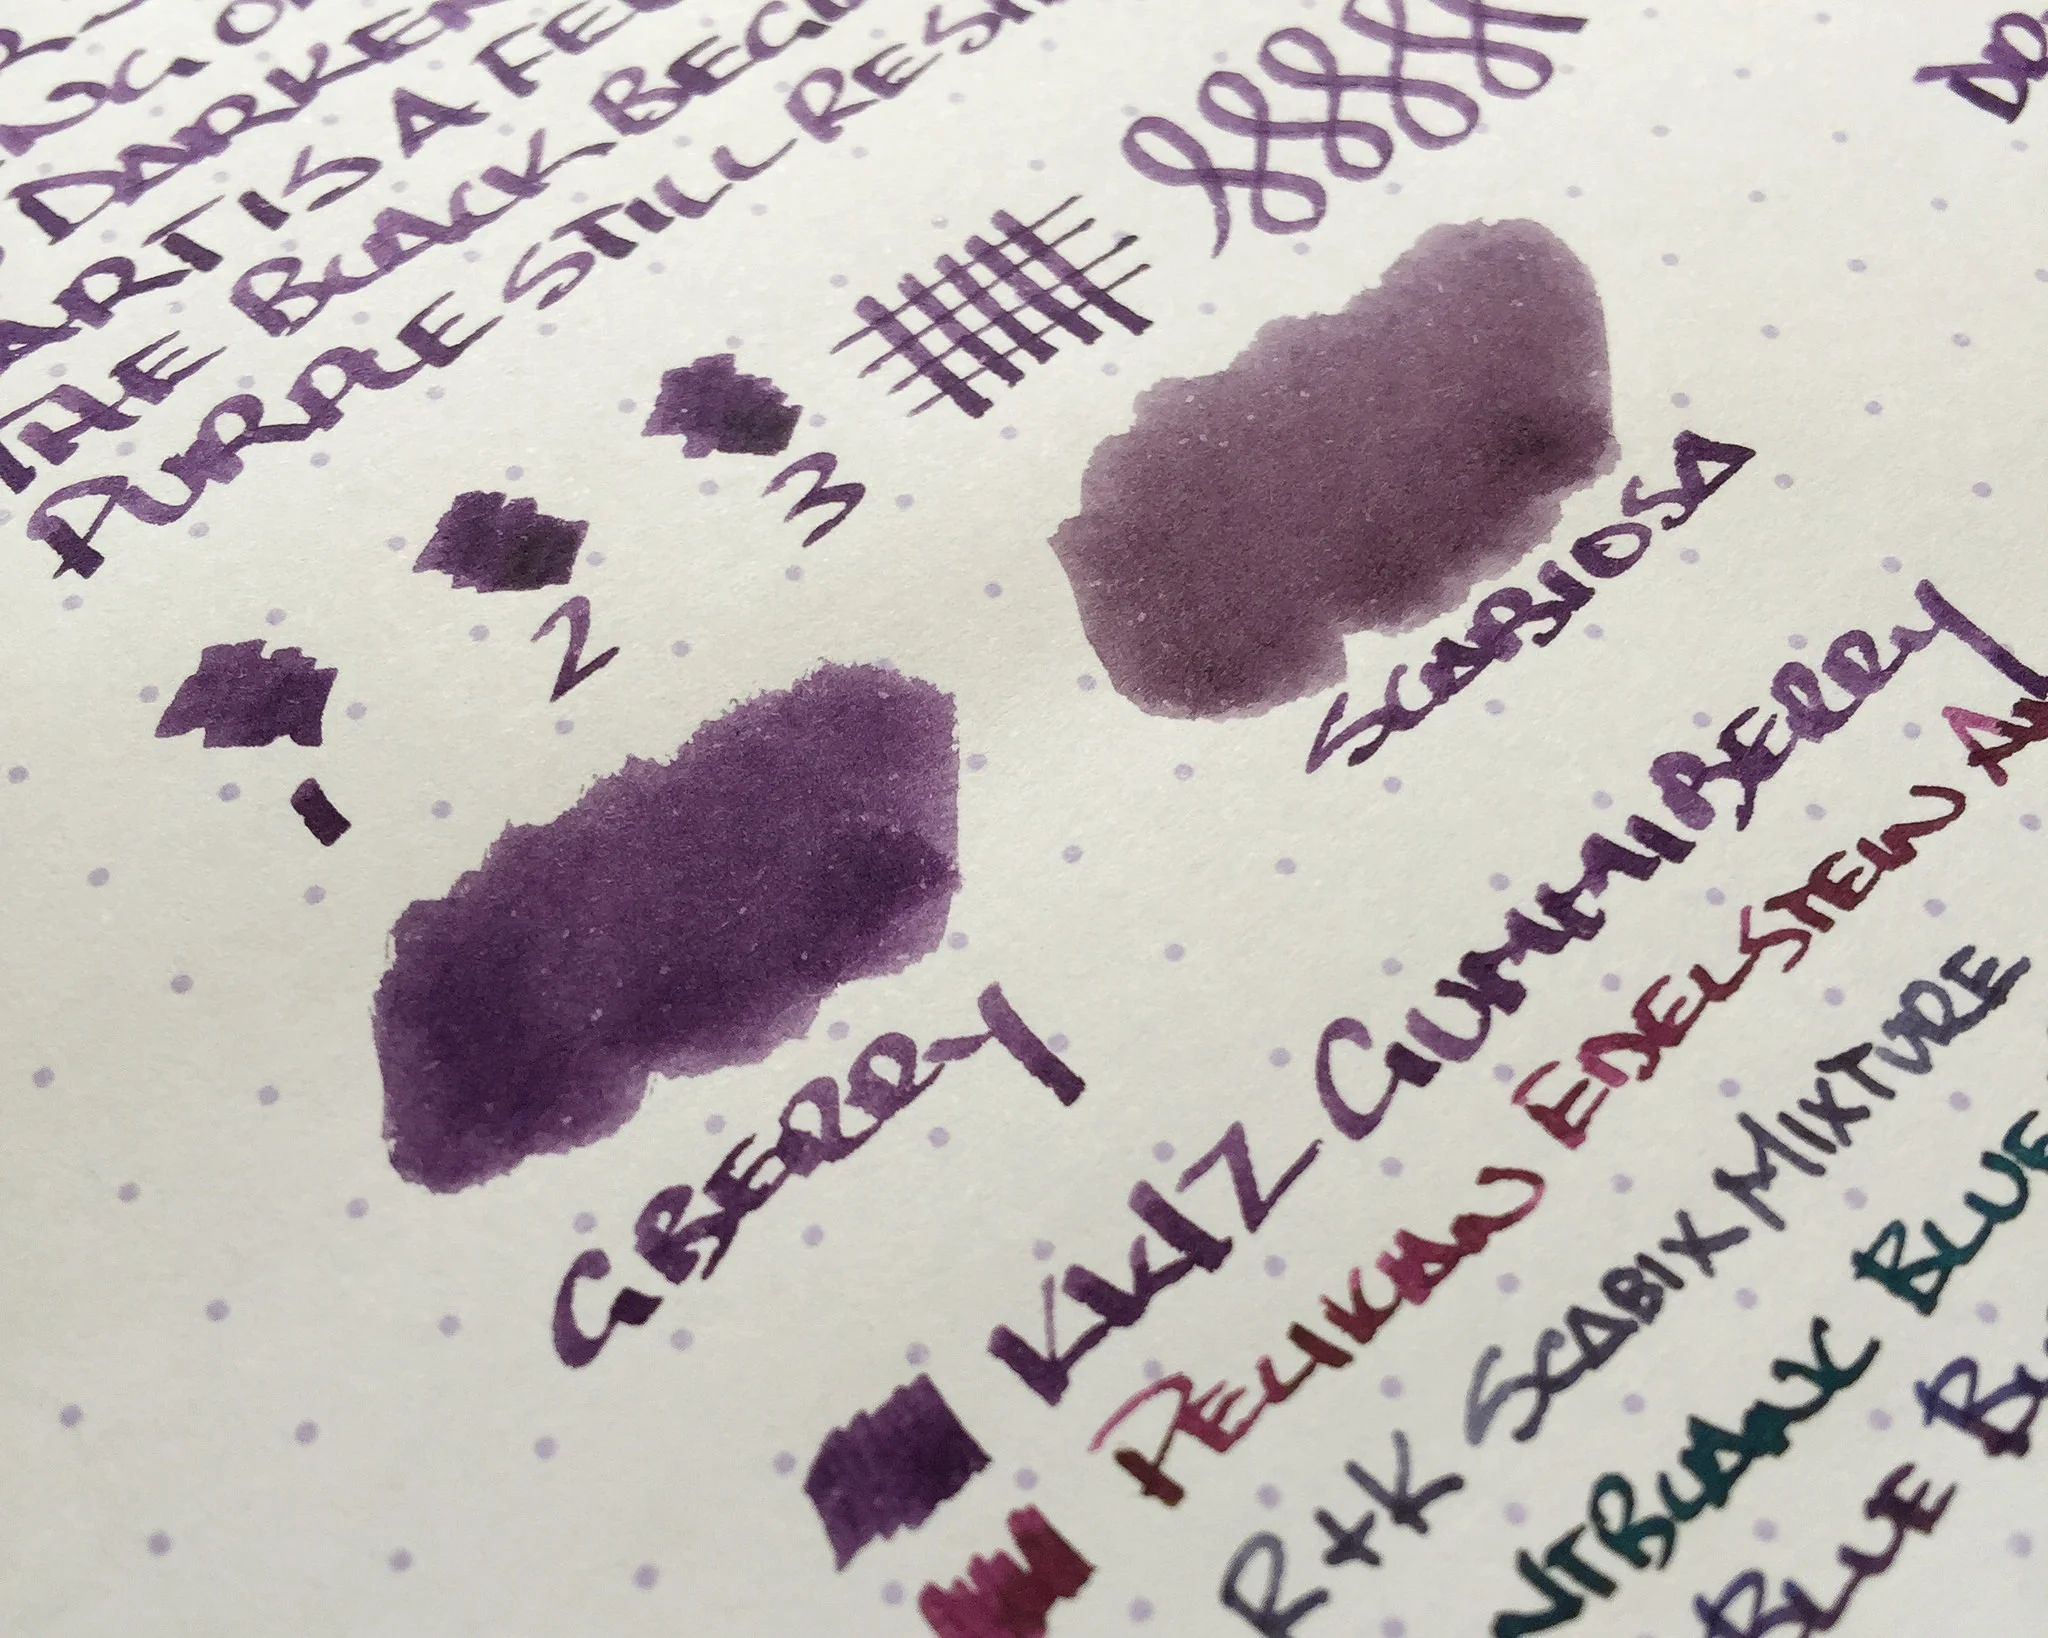 DARKER
ART IS A
THE BLACK
PURPLE STILL
1
2
3
SCABIOSA
GBERRY
KWZ GUMMIBERRY
PELIKAN EDELSTEIN
R+K SCABIX MIXTURE
BLUE
BLUE